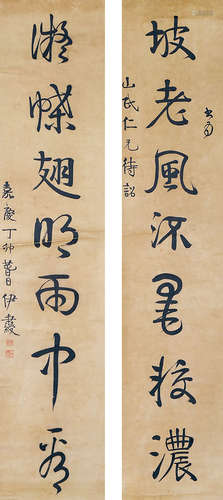 書為
坡老風流墨較濃
山民仁兄待詔
蝶翅明雨中看
嘉慶丁卯日伊秉綬